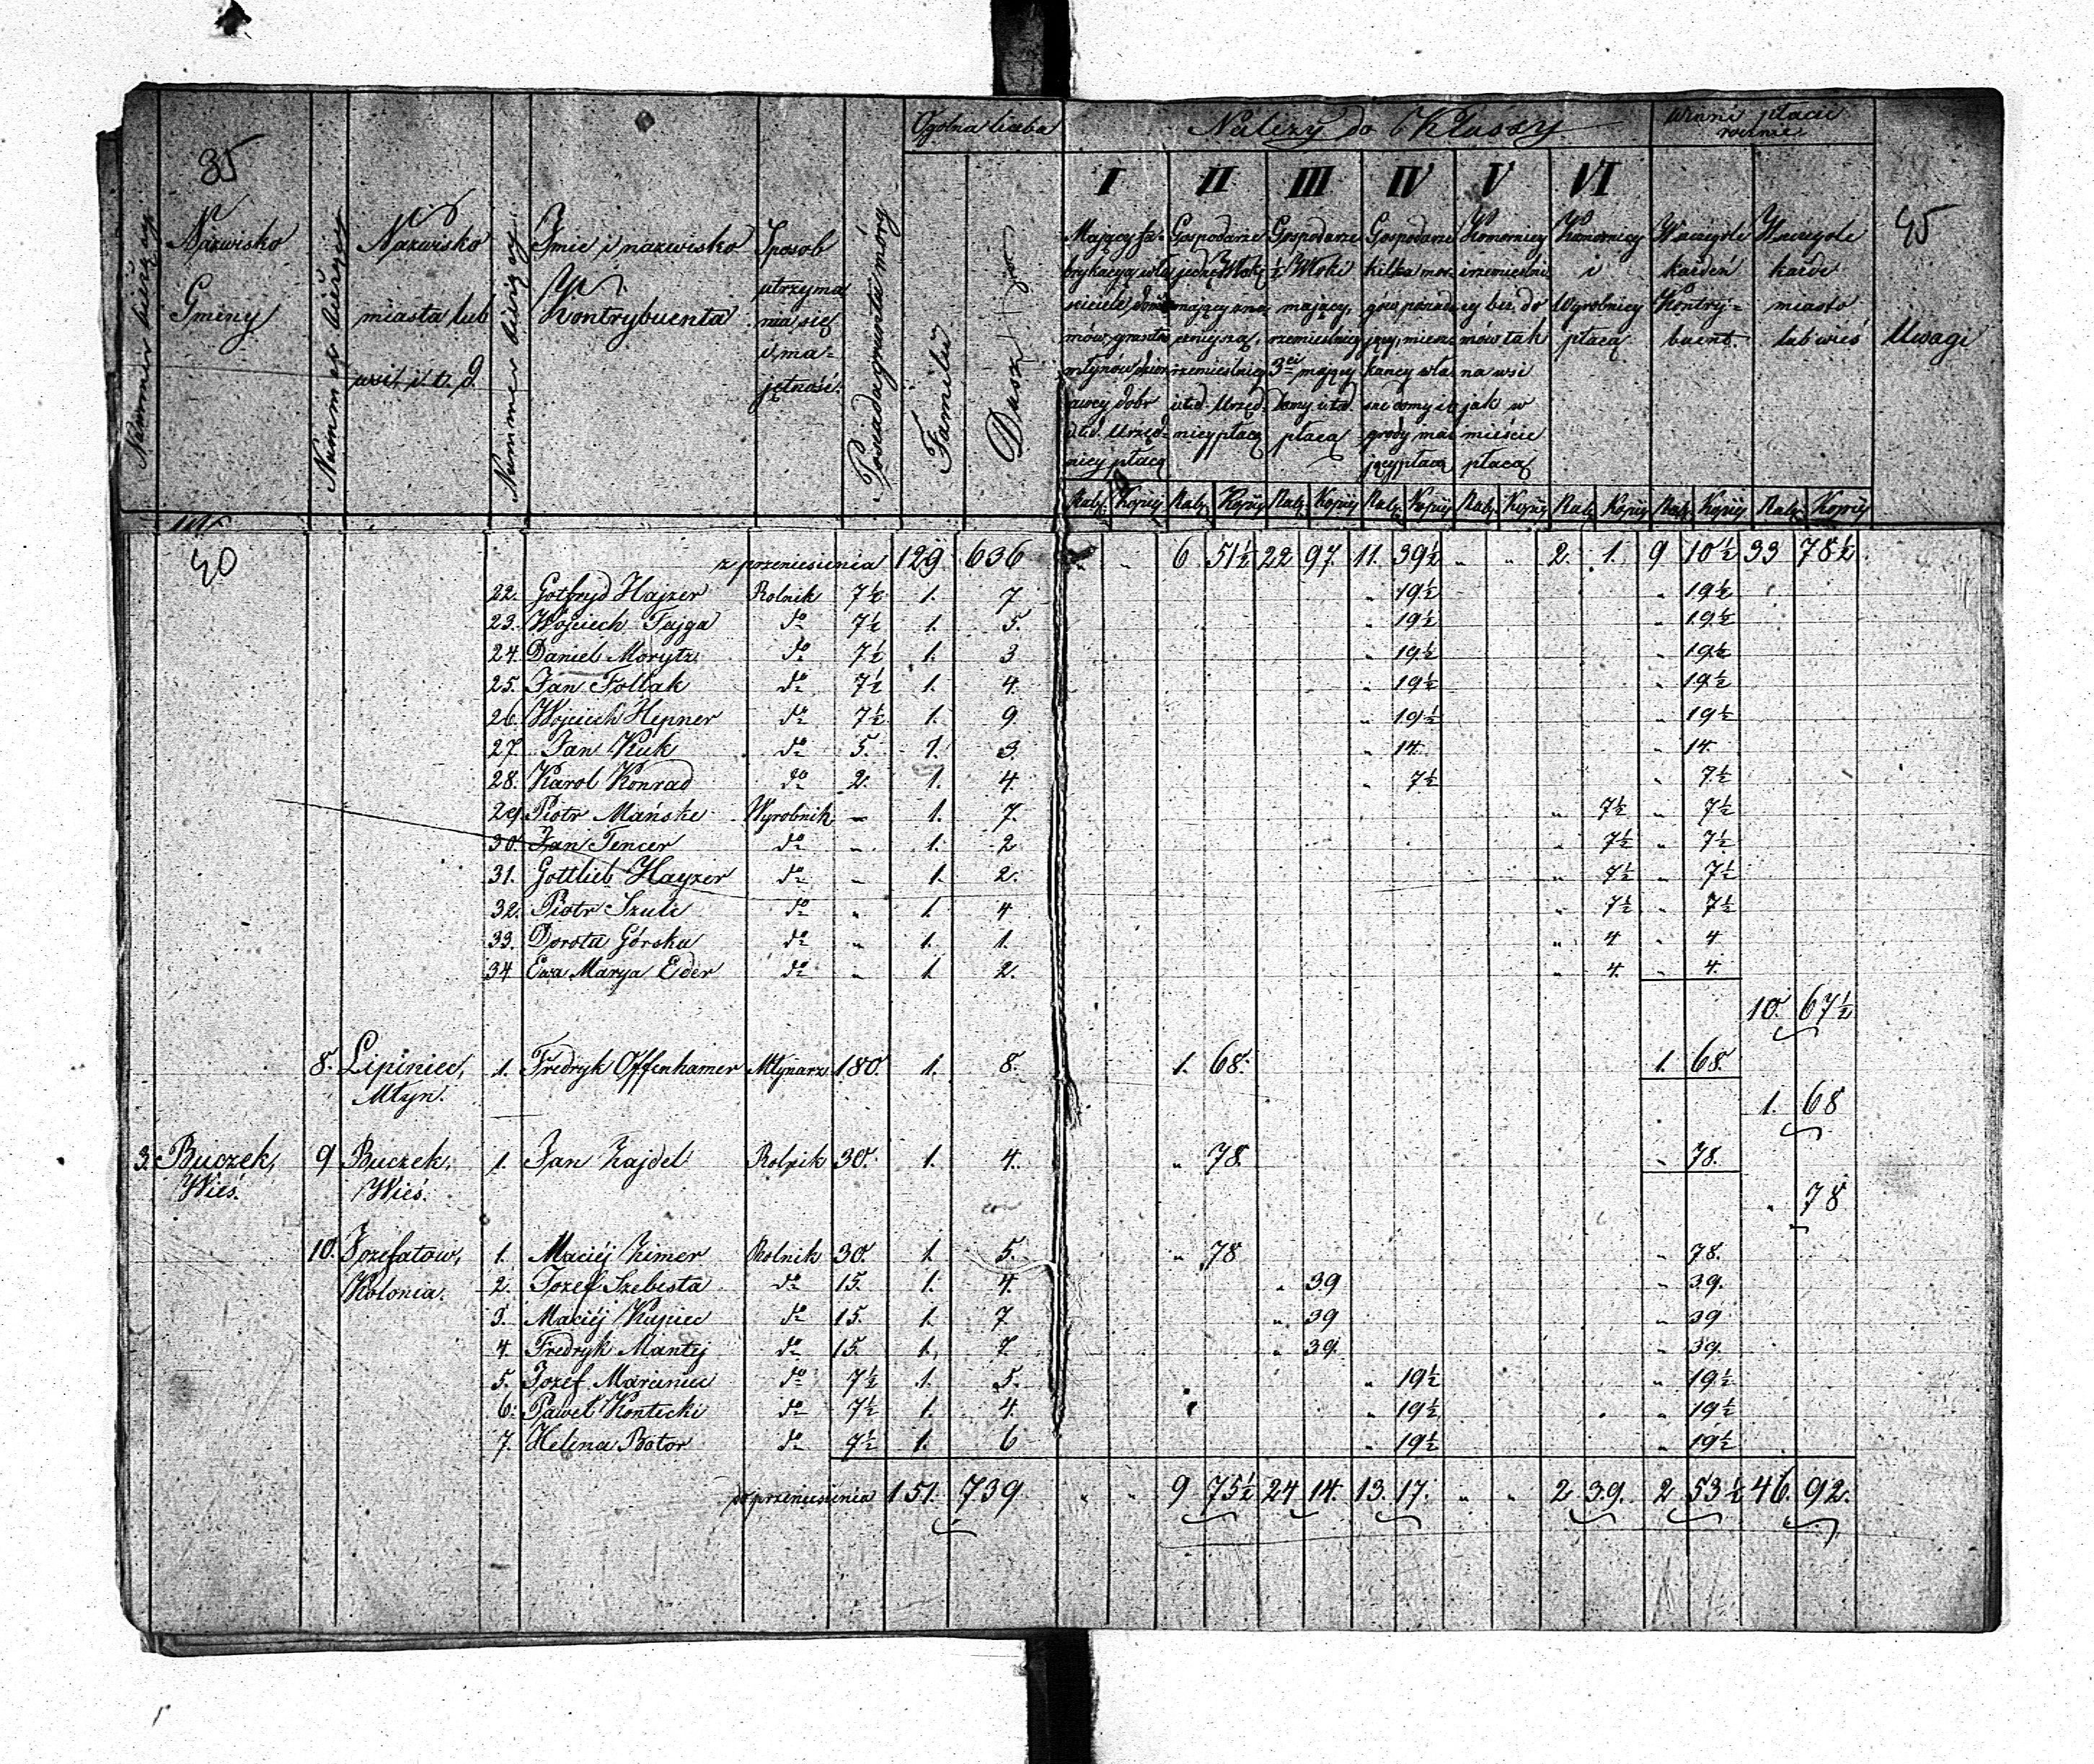 35
45
Ogólna liczba
Należy do Klassy
winni płacić
rocznie
I II III IV V VI
Nummer bieżący
Nazwisko
Gminy
Nummer bieżący
Nazwisko
miasta lub
wsi i t. d.
Nummer bieżący
Imie i nazwisko
Kontrybuenta
Sposób
utrzyma
nia się
i ma-
jętność
Posiada gruntu mórg
Familii
Dusz
Mający fa-
brykacyą wła
ściciele domów
mów, gruntu
młynów dzier
żawcy dóbr
i t.d. Urzęd-
nicy płacą
Gospodarze
jedną Włokę
mający
rzemieślnicy
i t.d. Urzęd-
nicy płacą
Gospodarze
½ Włoki
mający,
rzemieślnicy
3ci mający
Domy i t.d.
płacą
Gospodarze
kilka mor-
gów posiad
jący, miesz
kańcy wła
sne domy i o
grody ma
jący płacą
Komornicy
i rzemieślni
cy bez do
mów tak
na wsi
jak w
mieście
płacą
Komornicy
i
Wyrobnicy
płacą
W ciągu
każden
Kontry-
buent
W ciągu
każde
miasto
lub wieś
Uwagi
Rub. Kopij Rub. Kopij Rub. Kopij Rub. Kopij Rub. Kopij Rub. Kopij Rub. Kopij Rub. Kopij
40
z przeniesienia 129 636 " " 6 51½ 22 97. 11. 39½ " " 2. 1. 9 10½ 33 78½
22. Gotfryd Hajzer Rolnik 7½ 1. 7 " 19½ " 19½
23. Wojciech Fajga do 7½ 1. 5. 19½ " 19½
24. Daniel Morytz do 7½ 1. 3 " 19½ " 19½
25. Jan Follak do 7½ 1. 4. " 19½ " 19½
26. Wojciech Hepner do 7½ 1. 9. " 19½ " 19½
27. Jan Kuk do 5. 1. 3. " 14. " 14.
28. Karol Konrad do 2. 1. 4. " 7½ " 7½
29. Piotr Mańske Wyrobnik " 1. 7. " 7½ " 7½
30. Jan Tencer do " 1. 2 " 7½ " 7½
31. Gottlieb Hayzer do " 1. 2. " 7½ " 7½
32. Piotr Szulc do " 1 4 " 7½ " 7½
33. Dorota Górska do " 1. 1. " 4 " 4
34 Ewa Marya Eder do " 1 2. " 4. " 4.
10 67½
8. Lipiniec, 1. Fredryk Offenhamer Młynarz 180. 1. 8. 1. 68. 1. 68.
Młyn.
1. 68
3. Buczek, 9 Buczek, 1. Jan Zajdel Rolnik 30. 1. 4. " 78. " 78.
Wieś. Wieś.
" 78
10. Jozefatow, 1. Maciéj Zimer Rolnik 30. 1. 5. " 78 " 78.
Kolonia. 2. Jozef Szebesta do 15. 1. 4. " 39 " 39.
3. Maciéj Kupiec do 15. 1. 7 " 39 " 39
4. Fredryk Mantej do 15 1. 7. " 39. " 39.
5. Jozef Marciniec do 7½ 1. 5. " 19½ " 19½
6. Paweł Kontecki do 7½ 1. 4. " 19½ " 19½
7. Helena Botor do 7½ 1. 6 " 19½ " 19½
do przeniesienia 151. 739 " " 9 75½ 24 14. 13. 17. " " 2 39. 2 53½ 46. 92.